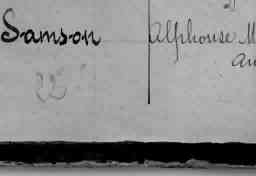 Samson
Alphonse M
au
22